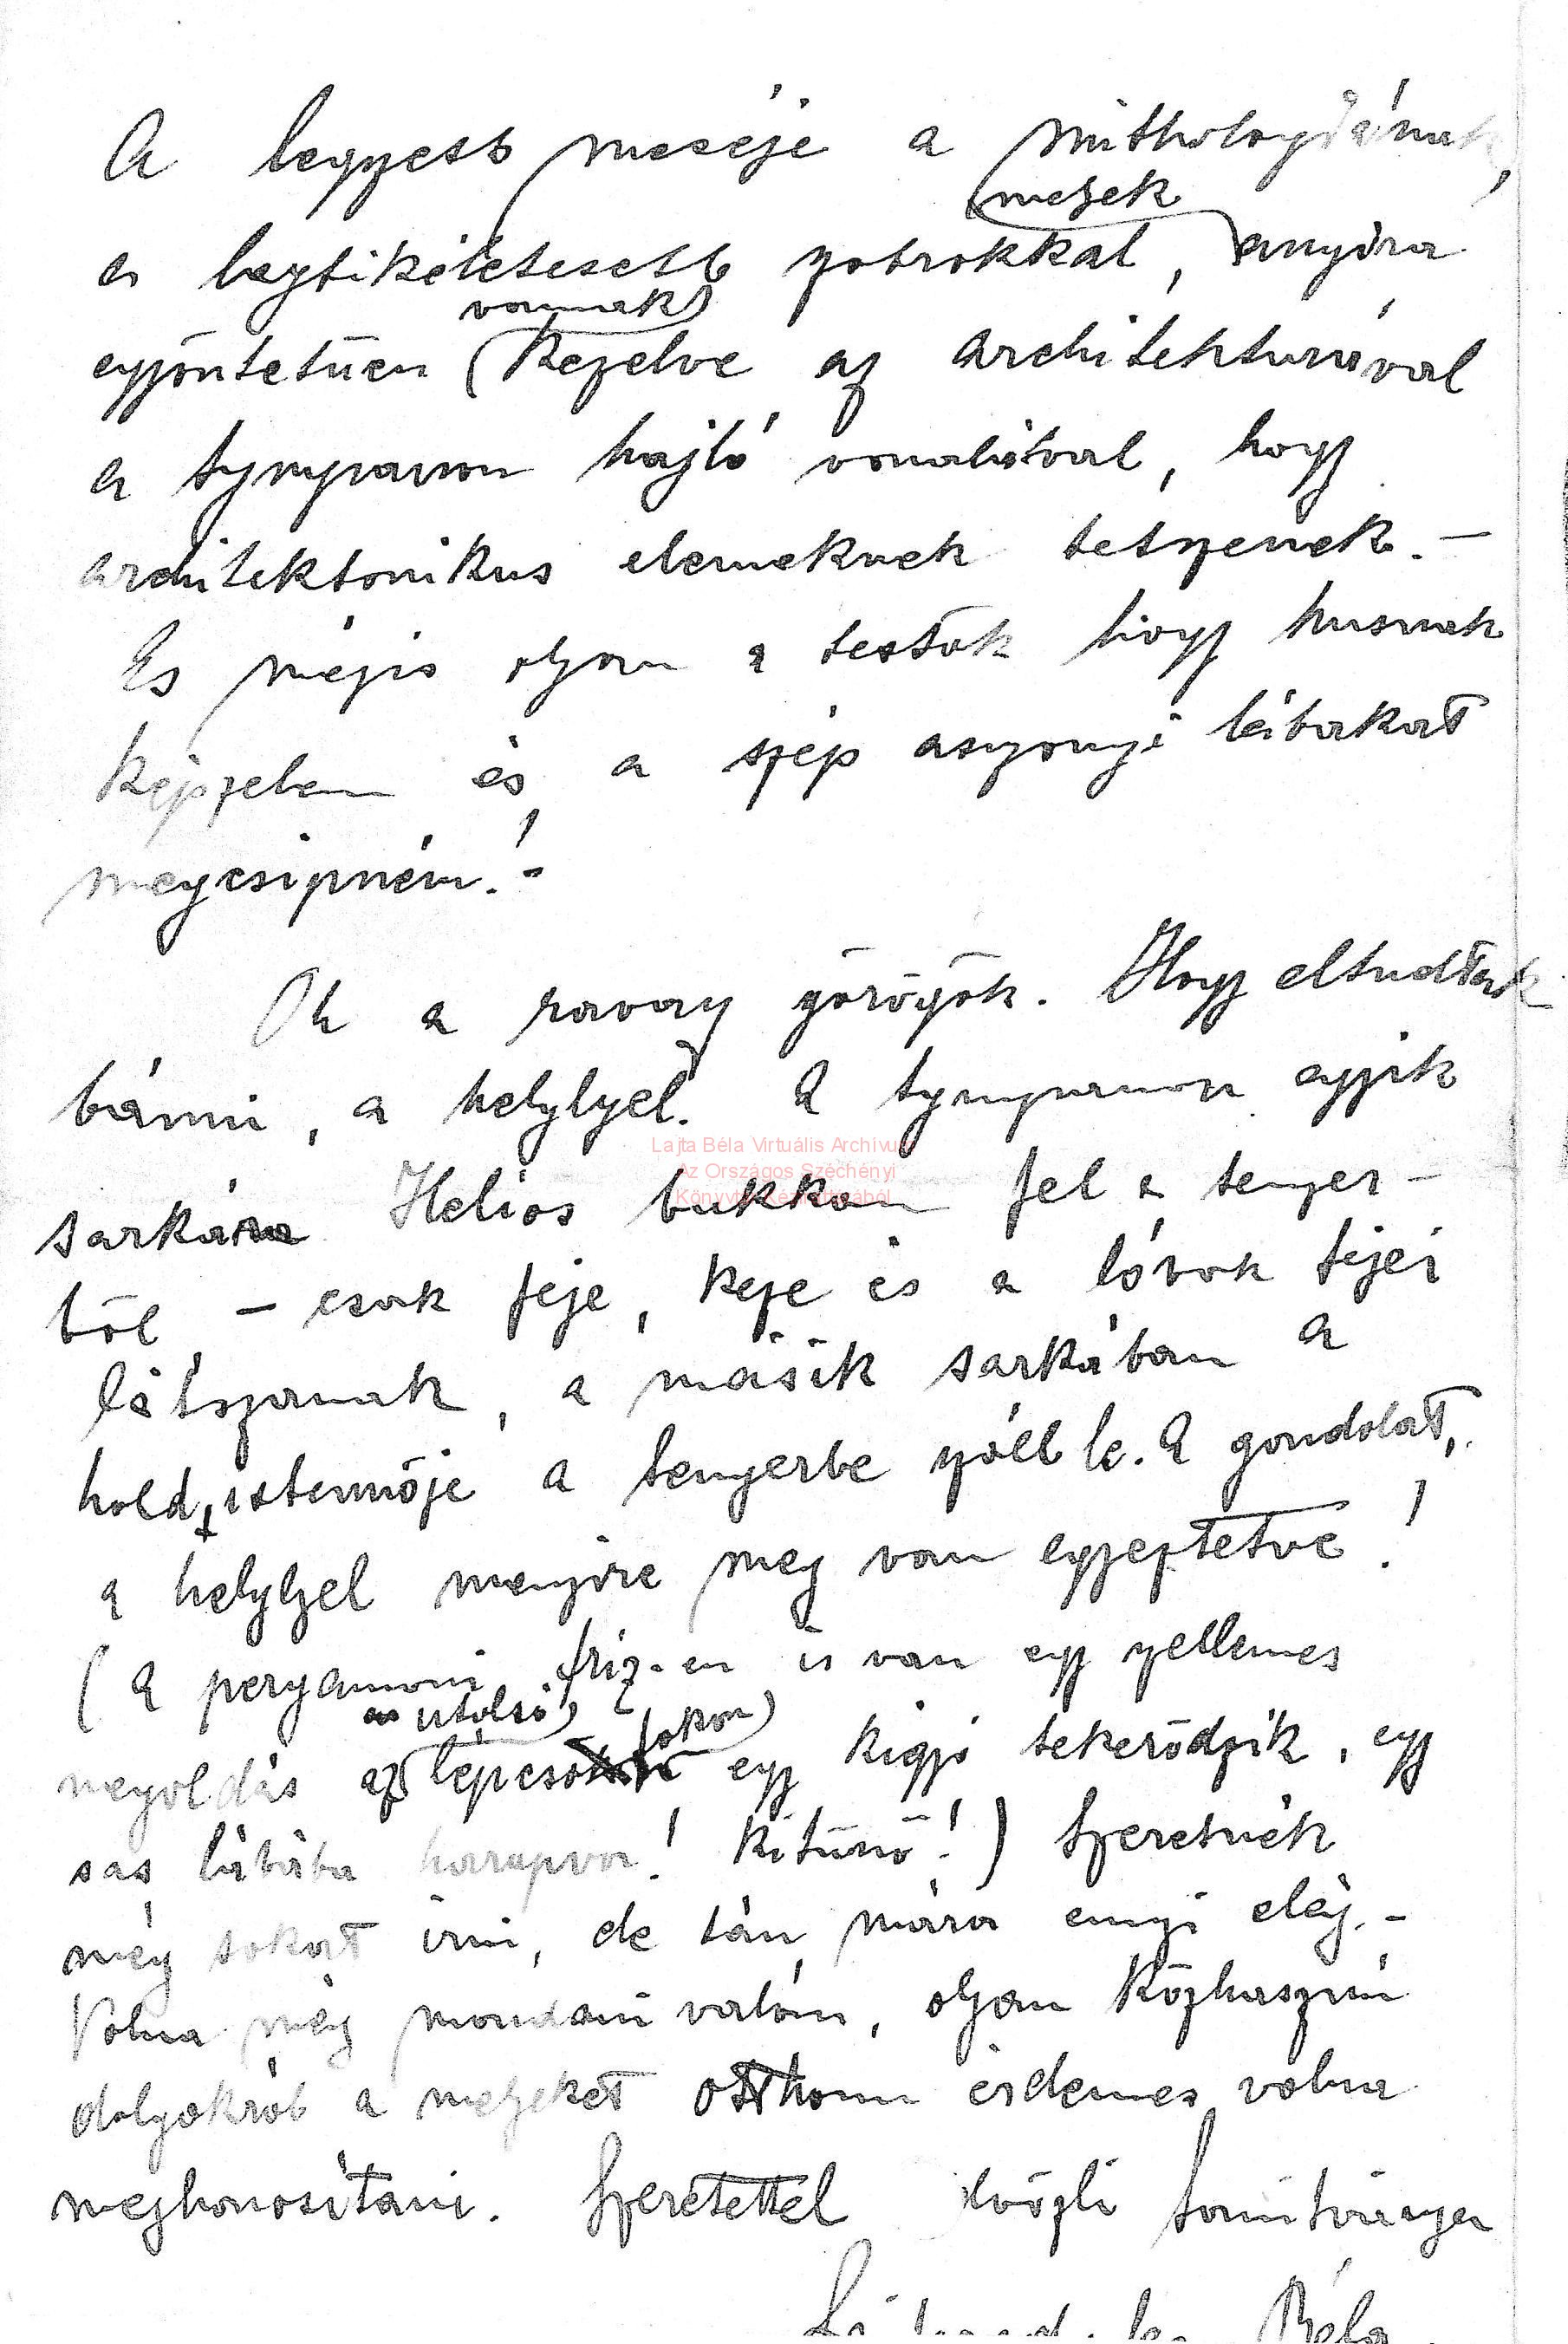 A legszebb meséje a mithologiának,
a legtökéletesebb szobrokkal, (melyek) anyira
egyöntetüen (vannak) kezelve az architekturával
a tympanon hajló vonalával, hogy
architektonikus elemeknek tetszenek. –
És mégis olyan a testük hogy husnak
képzelem és a szép asszonyi lábakat
megcsipném! –
Oh a ravasz görögök. Hogy eltudtak
bánni, a helylyel. A tympanon egyik
sarkára Helios bukkan fel a tenger-
ből – csak feje, keze és a lóvak fejei
látszanak, a másik sarkában a
hold istennője a tengerbe száll le. A gondolat,
a helylyel menyire meg van egyeztetve!
(A pergamoni friz-en is van egy szellemes
megoldás az utolsó lépcsőfokon egy kigyó tekerődzik, egy
sas lábába harapva! Kitünő!) Szeretnék
még sokat irni, de tán mára enyi elég. –
Volna még mondani valóm, olyan közhasznú
dolgokról a melyeket otthonn érdemes volna
meghonositani. Szeretettel üdvözli tanitványa
Béla
Lajta Béla Virtuális Archívum
Az Országos Széchényi
Könyvtár Kézirattárából